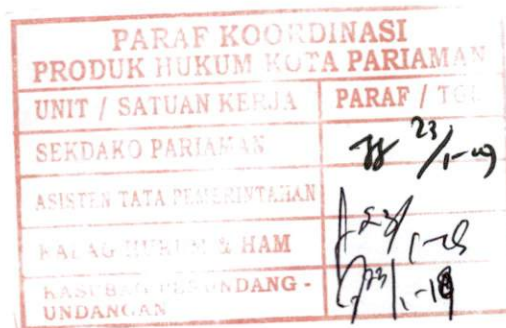 PARAF KOORDINASI
PRODUK HUKUM KOTA PARIAMAN
UNIT / SATUAN KERJA PARAF / TGL
SEKDAKO PARIAMAN 23/1-09
ASISTEN TATA PEMERINTAHAN
KABAG HUKUM & HAM 23/1-09
KASUBAG PERUNDANG -
UNDANGAN 23/1-